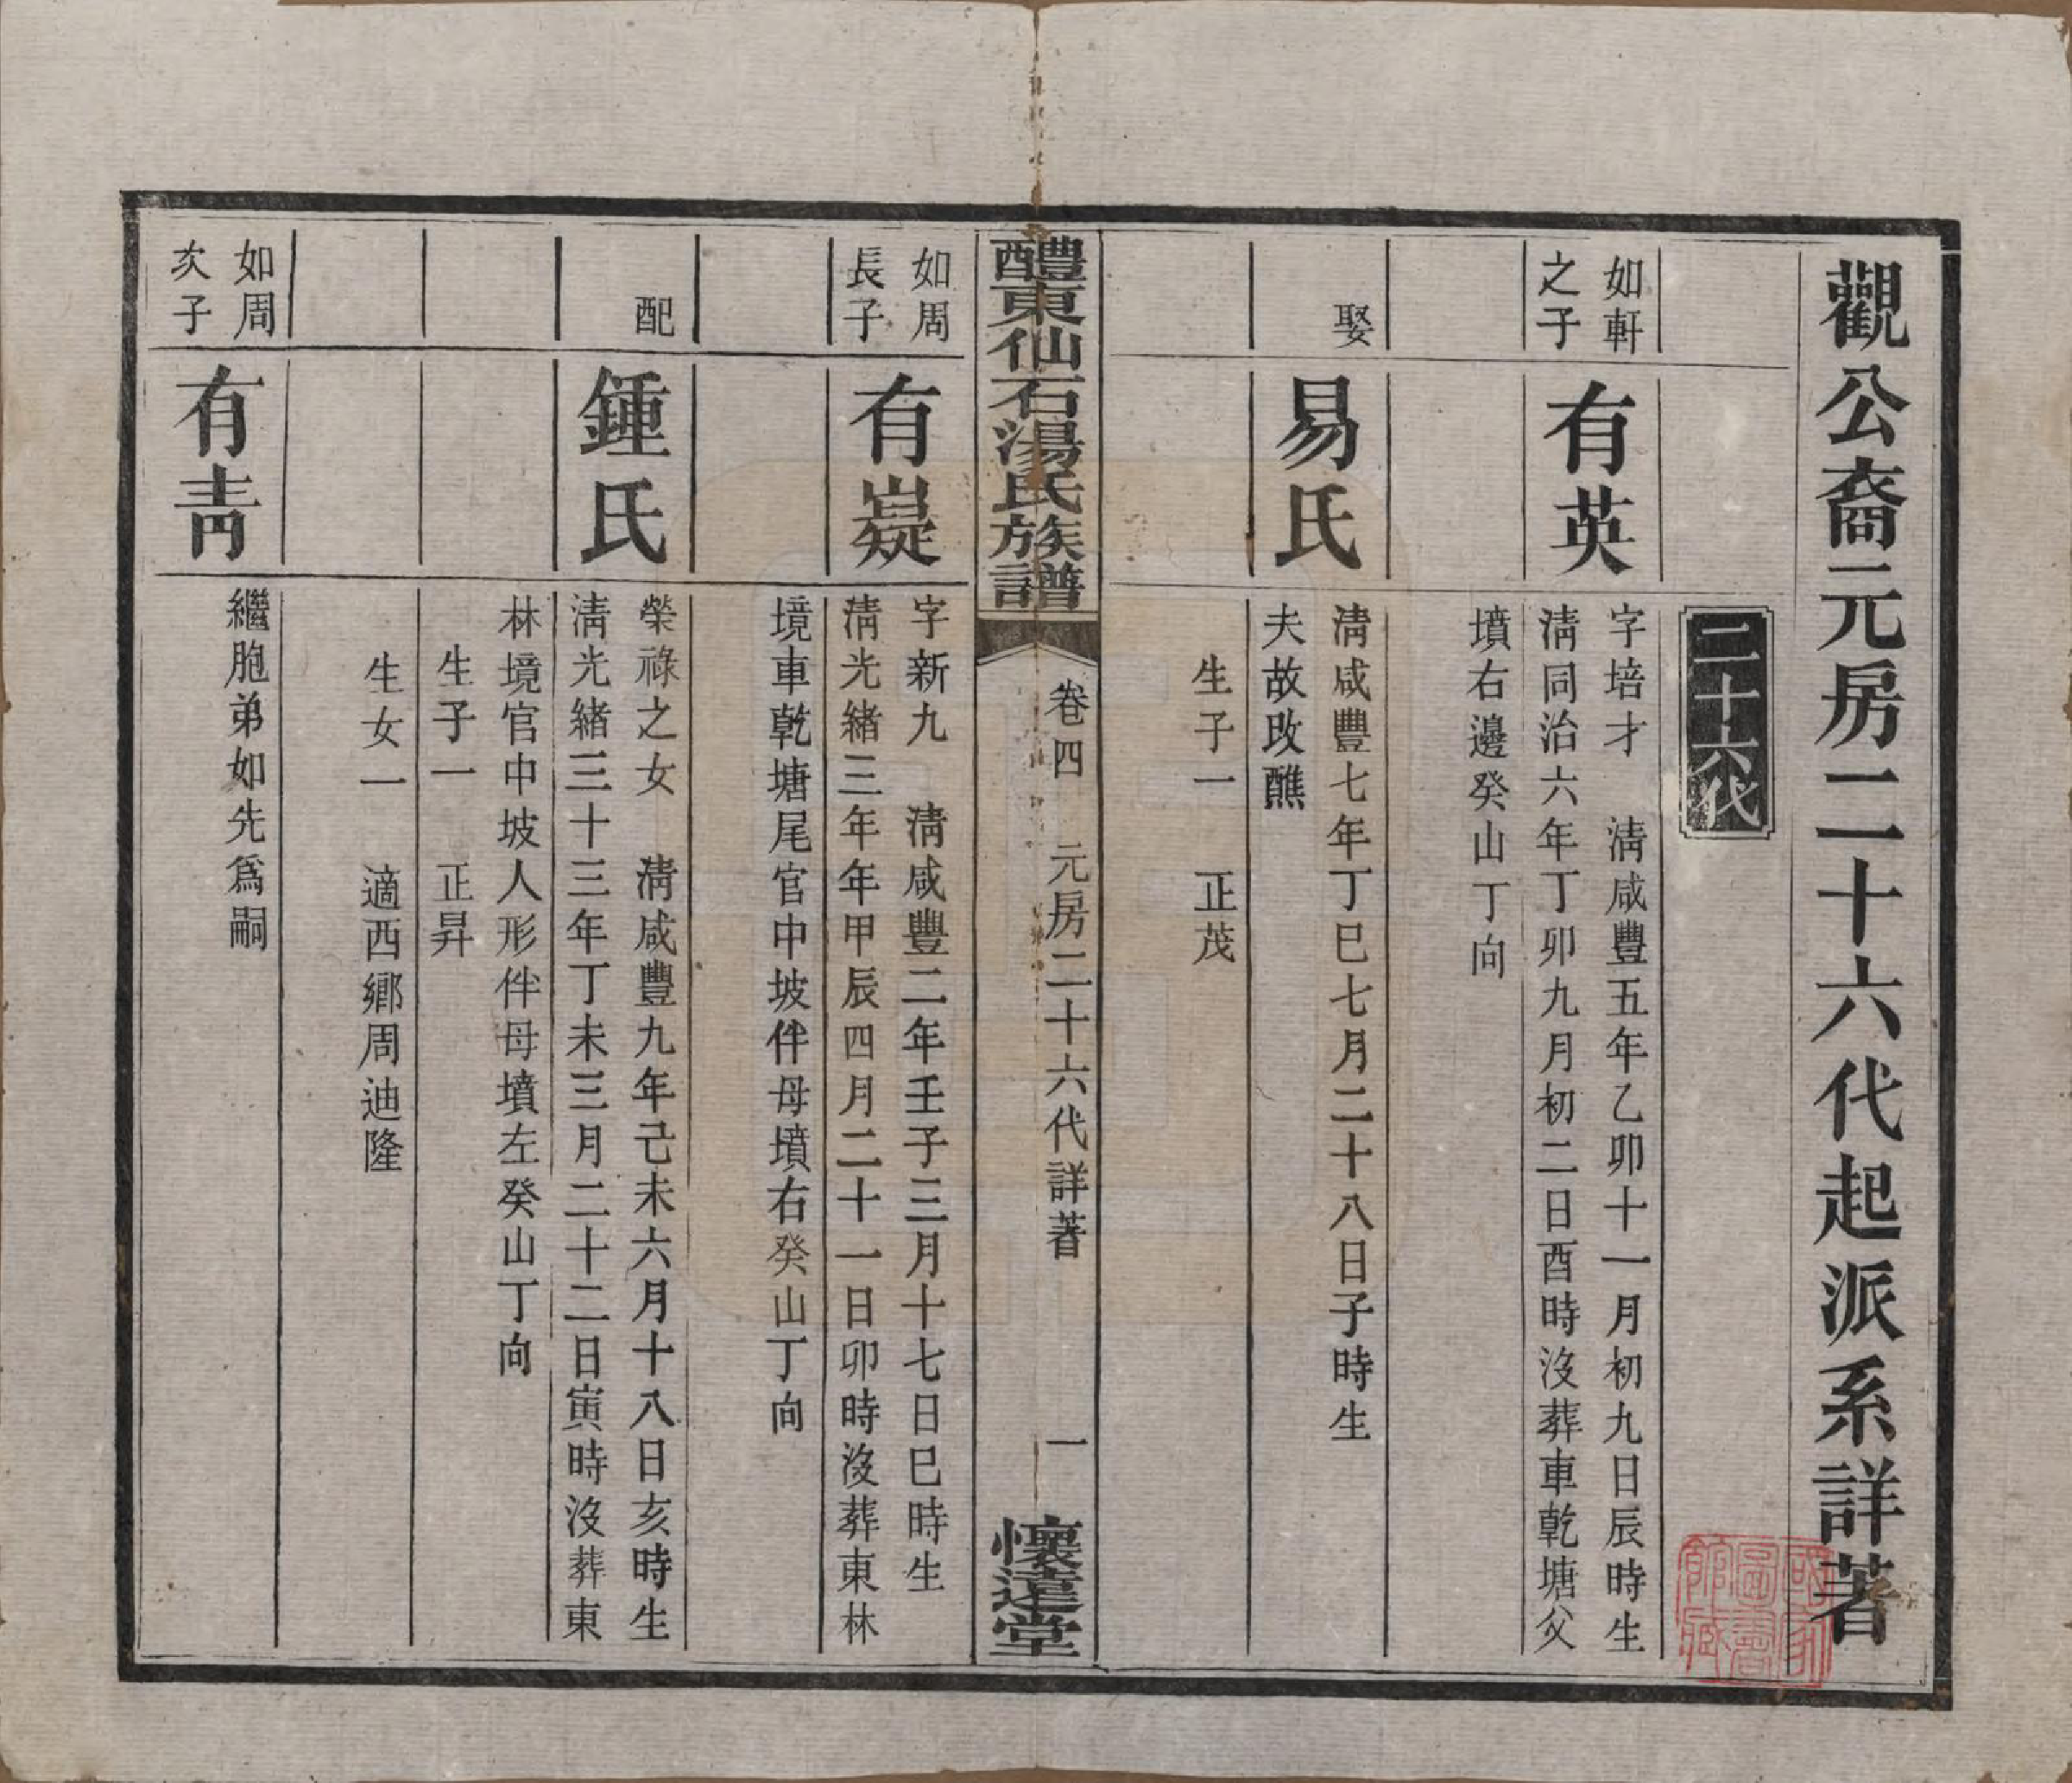 觀公裔元房二十六代起派系詳著
二十六代
如軒
之子
有英
字培才　淸咸豐五年乙卯十一月初九日辰時生
淸同治六年丁卯九月初二日酉時沒葬車乾塘父
墳右邊癸山丁向
娶
易氏
淸咸豐七年丁巳七月二十八日子時生
夫故改醮
生子一　正茂
醴東仙石湯氏族譜
卷四　元房二十六代詳著
一
懷遠堂
如周
長子
有嶷
字新九　淸咸豐二年壬子三月十七日巳時生
淸光緒三年年甲辰四月二十一日卯時沒葬東林
境車乾塘尾官中坡伴母墳右癸山丁向
配
鍾氏
榮祿之女　淸咸豐九年己未六月十八日亥時生
淸光緒三十三年丁未三月二十二日寅時沒葬東
林境官中坡人形伴母墳左癸山丁向
生子一　正昇
生女一　適西鄉周迪隆
如周
次子
有靑
繼胞弟如先爲嗣
國家
圖書
館藏